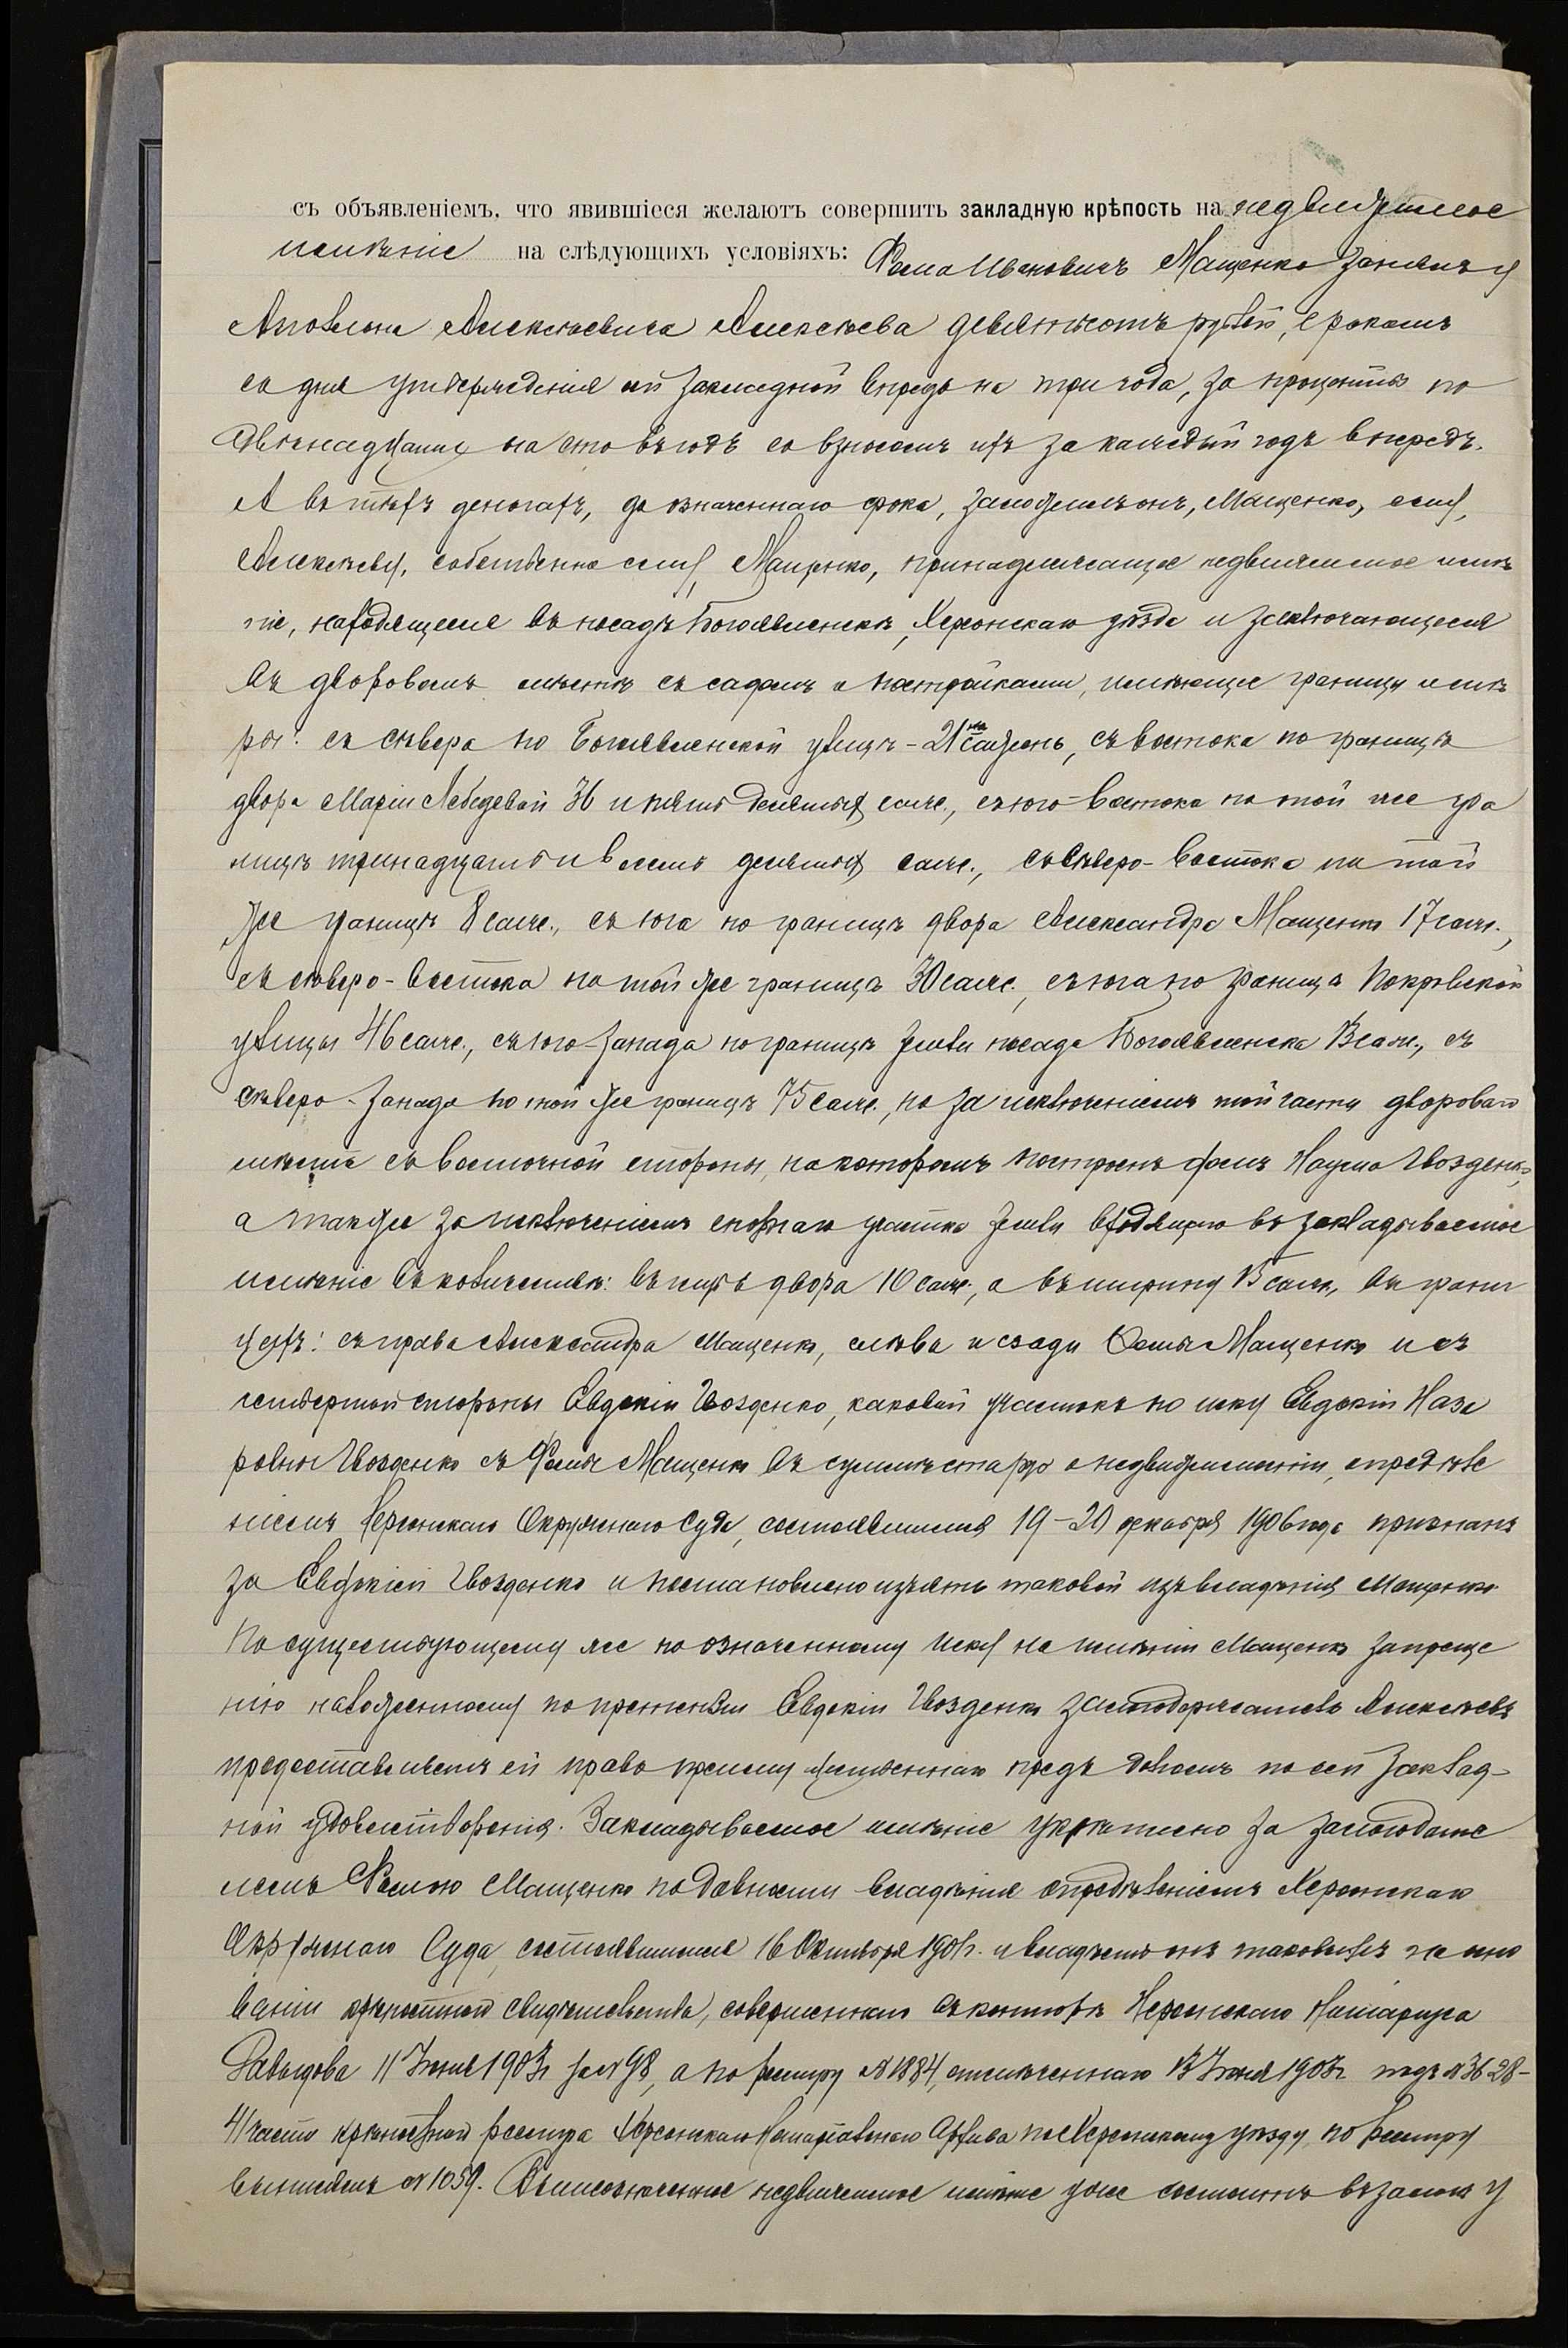 съ объявленіемъ, что явившіеся желаютъ совершить закладную крѣпость на недвижимое
имѣніе на слѣдующихъ условіяхъ: Фома Ивановичъ Мащенко занялъ у
Аполлона Алексѣевича Алексѣева девятьсотъ рублей, срокомъ
со дня утвержденія сей закладной впредь на три года, за проценты по
двѣнадцати на сто въ годъ со взносомъ ихъ за каждый годъ впередъ.
А въ тѣхъ деньгахъ, до означеннаго срока, заложилъ онъ, Мащенко, ему,
Алексѣеву, собственно ему, Мащенко, принадлежащее недвижимое имѣ
ніе, находящееся въ посадѣ Богоявленскѣ, Херсонскаго уѣзда и заключающееся
въ дворовомъ мѣстѣ съ садомъ и постройками, имѣющее границы и мѣ
ру: съ сѣвера по Богоявленской улицѣ - 21 сажень, съ востока по границѣ
двора Маріи Лебедевой 36 и пять десятыхъ саж., съ юго-востока по той же гра
ницѣ тринадцать и восемь десятыхъ саж., съ сѣверо-востока по той
же границѣ 8 саж., съ юга по границѣ двора Александра Мащенко 17 саж.,
съ сѣверо-востока по той же границѣ 30 саж., съ юга по границѣ Покровской
улицы 46 саж., съ юго-запада по границѣ земли посада Богоявленска 13 саж., съ
сѣверо-запада по той же границѣ 75 саж., но за исключеніемъ той части двороваго
мѣста съ восточной стороны, на которомъ построенъ домъ Наума Гвозденко,
а также за исключеніемъ спорнаго участка земли входящаго въ закладываемое
имѣніе въ количествѣ: въ глубь двора 10 саж., а въ ширину 15 саж., въ грани
цахъ: съ права Александра Мащенко, слѣва и сзади Фомы Мащенко и съ
четвертой стороны Евдокіи Гвозденко, каковой участокъ по иску Евдокіи Наза
ровны Гвозденко съ Фомы Мащенко въ суммѣ ста руб о недвижимомъ имѣніи, опредѣле
ніемъ Херсонскаго Окружнаго Суда, состоявшимся 19-20 декабря 1906 года признанъ
за Евдокіей Гвозденко и постановлено изъять таковой изъ владѣнія Мащенко.
По существующему же по означенному иску на имѣніи Мащенко запреще
нію наложенному по претензіи Евдокіи Гвозденко залогодержатель Алексѣевъ
предоставляетъ ей право преимущественнаго предъ долгомъ по сей заклад-
ной удовлетворенія. Закладываемое имѣніе укрѣплено за залогодате
лемъ Фомою Мащенко по давности владѣнія опредѣленіемъ Херсонскаго
Окружнаго Суда, состоявшимся 16 Октября 1901 г. и владѣетъ онъ таковымъ на осно
ваніи крѣпостнаго свидѣтельства, совершеннаго въ конторѣ Херсонскаго Нотаріуса
Давыдова 11 Іюня 1903 г. за № 98, а по реестру № 1884, отмѣченнаго 13 Іюня 1903 г. подъ № 36 28-
41 части крѣпостной реестра Херсонскаго Нотаріальнаго Архива по Херсонскому уѣзду, по реестру
№ 1059. Вышеозначенное недвижимое имѣніе уже состоитъ въ залогѣ у